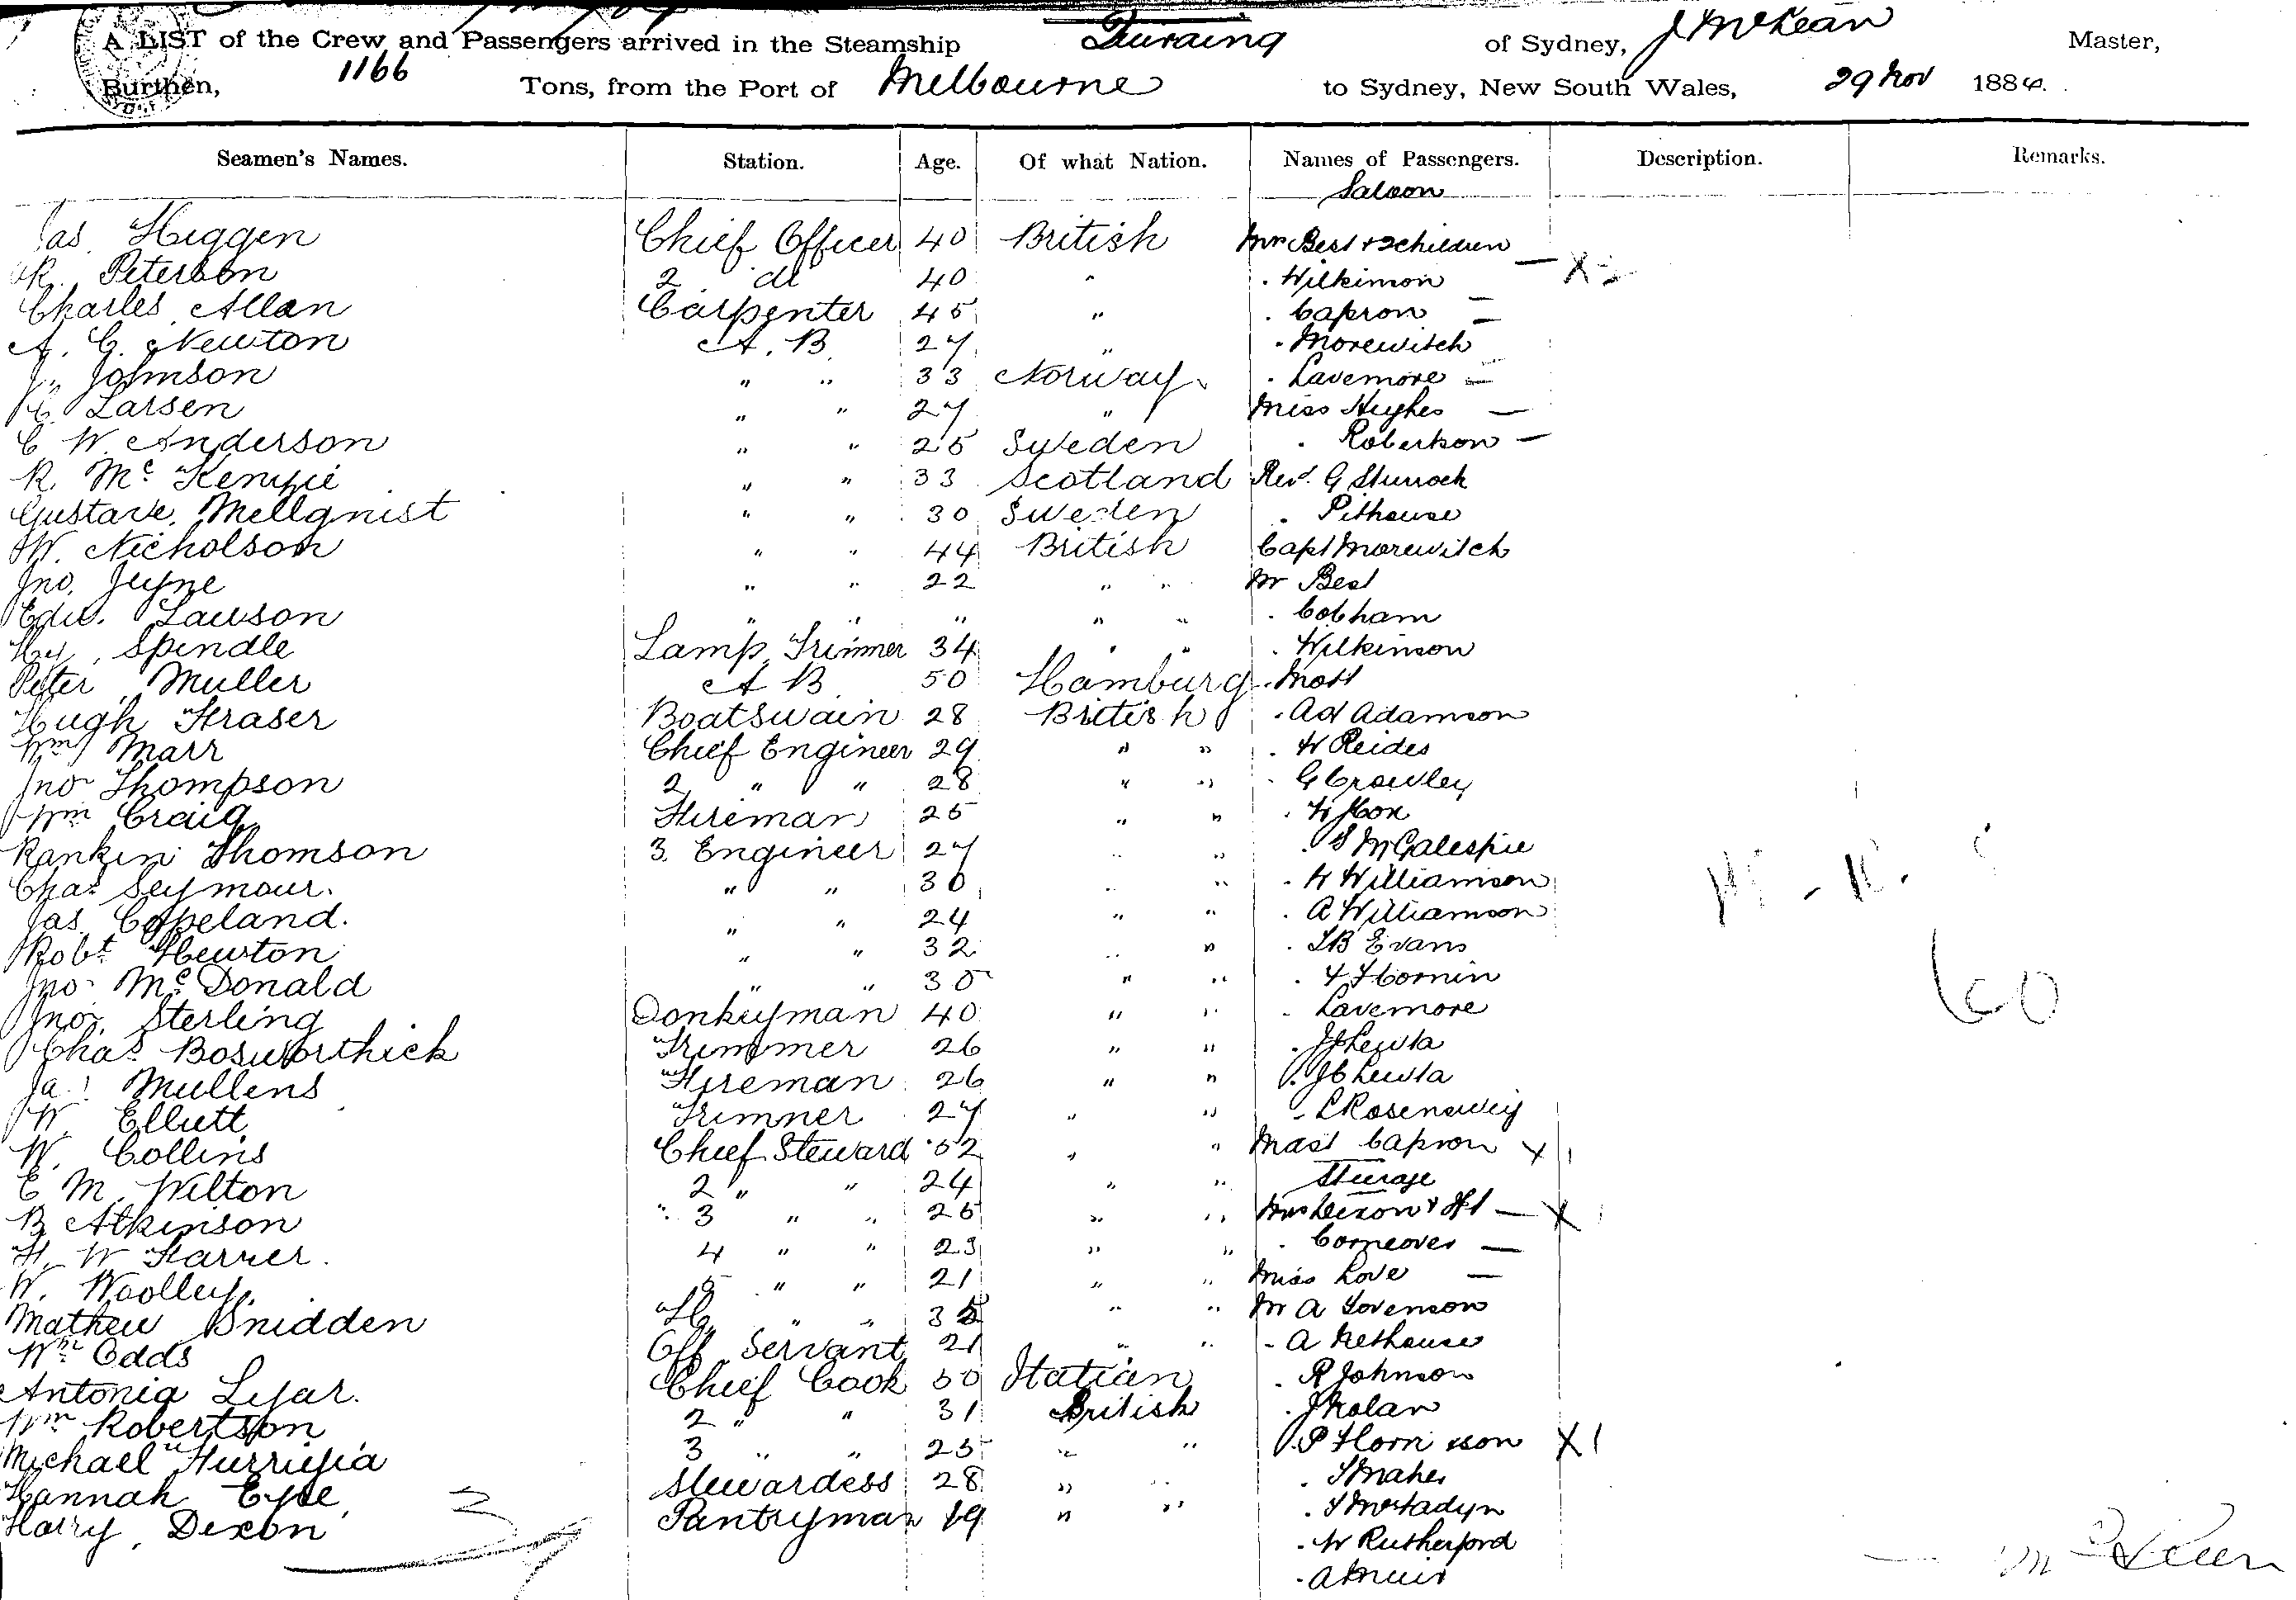 A LIST of the Crew and Passengers arrived in the Steamship Quiraing of Sydney, J McKean Master,
Burthen, 1166 Tons, from the Port of Melbourne to Sydney, New South Wales, 29 Nov 1884.
Seamen's Names. Station. Age. Of what Nation. Names of Passengers. Description. Remarks.
Saloon
Jas Higgen Chief Officer 40 British Mrs Best + 2 children
R. Peterson 2 do 40 " . Wilkinson
Charles Allan Carpenter 45 " . Capron
A. G. Newton A. B 27 " . Morewitch
J. Johnson " " 33 Norway . Lavemore
C. Larsen " " 27 " Miss Hughes
C W Anderson " " 25 Sweden . Robertson
R. Mc Kenzie " " 33 Scotland Revd. G Sturrock
Gustave Mellqnist " " 30 Sweden . Pithouse
W. Nicholson " " 44 British Capt Morewitch
Jno. Jeyne " " 22 " " Mr Best
Edw. Lawson " " " " " . Cobham
Hy. Spindle Lamp Trimmer 34 " " . Wilkinson
Peter Muller A B 50 Hamburg . Mott
Hugh Fraser Boatswain 28 British . Ad Adamson
Wm Marr Chief Engineer 29 " " . W Reides
Jno Thompson 2 " " 28 " " . G Crowley
Wm Craig Fireman 25 " " . H Cox
Rankin Thomson 3. Engineer 27 " " . S McGalespie
Chas Seymour. " " 30 " " . H Williamson
Jas. Copeland. " " 24 " " . A Williamson
Robt Hewton " " 32 " " . T B Evans
Jno Mc Donald " " 30 " " . Y F Cornin
Jno. Sterling Donkeyman 40 " " . Lavemore
Chas Bosworthick Trimmer 26 " "
Ja! Mullens Fireman 26 " "
W. Elliott Trimner 27 " " . L Rosenweig
W. Collins Chief Steward 52 " " Mast Capron X 1
E M. Wilton 2 " " 24 " " Steerage
B Atkinson 3 " " 25 " " Mrs Dixon & Hl X
H. W Farrer. 4 " " 23 " " . Corneover
W. Woolley. 5 " " 21 " " Miss Love
Mathew Bnidden " " " " Mr A Sorenson
Wm Edds Off Servant 21 " " . A Nethouse
Antonia Lyar. Chief Cook 50 Italian . R Johnson
Wm Robertson 2 " " 31 British . J Nolan
Michael Hurrigia 3 " " 25 " " . P Horn & son X 1
Hannah Eyre Stewardess 28 " " . T Maher
Harry Dixon Pantryman 19 " " . T McFadyn
. W Rutherford
. A Muir
39
60
McKean